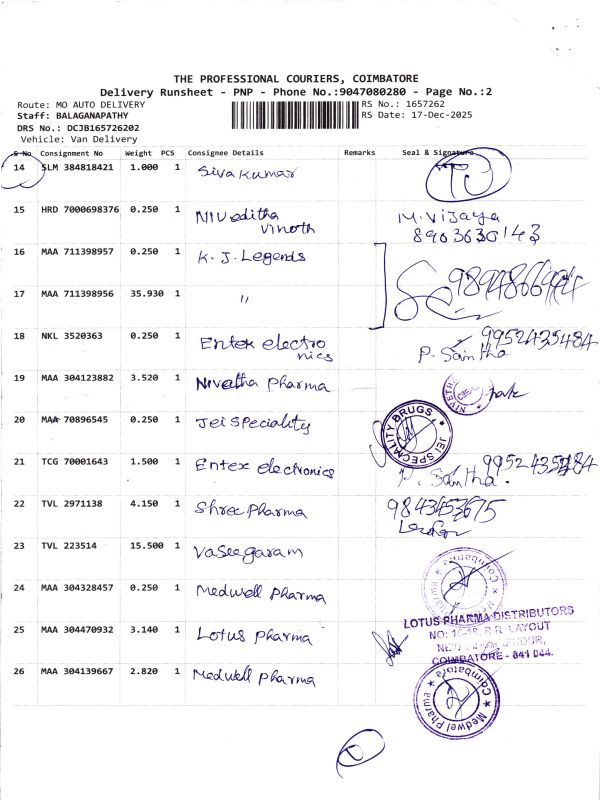 THE PROFESSIONAL COURIERS, COIMBATORE
Delivery Runsheet - PNP - Phone No.:9047080280 - Page No.:2
Route: MO AUTO DELIVERY
Staff: BALAGANAPATHY
DRS No.: DCJB165726202
Vehicle: Van Delivery
RS No.: 1657262
RS Date: 17-Dec-2025
S No Consignment No Weight PCS Consignee Details Remarks Seal & Signature
14 SLM 384818421 1.000 1 Sivakumar
15 HRD 7000698376 0.250 1 Niveditha
Vinoth
M. Vijaya
8903630143
16 MAA 711398957 0.250 1 K. J. Legends
17 MAA 711398956 35.930 1 "
18 NKL 3520363 0.250 1 Entex electro
nics
9952435484
P. Santha
19 MAA 304123882 3.520 1 Nivetha Pharma
20 MAA 70896545 0.250 1 Jei Speciality
JEI SPECIALITY DRUGS
21 TCG 70001643 1.500 1 Entex electronics
9952435484
P. Santha.
22 TVL 2971138 4.150 1 Shree Pharma
9843453675
23 TVL 223514 15.500 1 Vaseegaram
24 MAA 304328457 0.250 1 Medwell Pharma
Medwel Pharma Coimbatore
25 MAA 304470932 3.140 1 Lotus Pharma
LOTUS PHARMA DISTRIBUTORS
R.R. LAYOUT
COIMBATORE - 641 044.
26 MAA 304139667 2.820 1 Medwell Pharma
Medwel Pharma Coimbatore